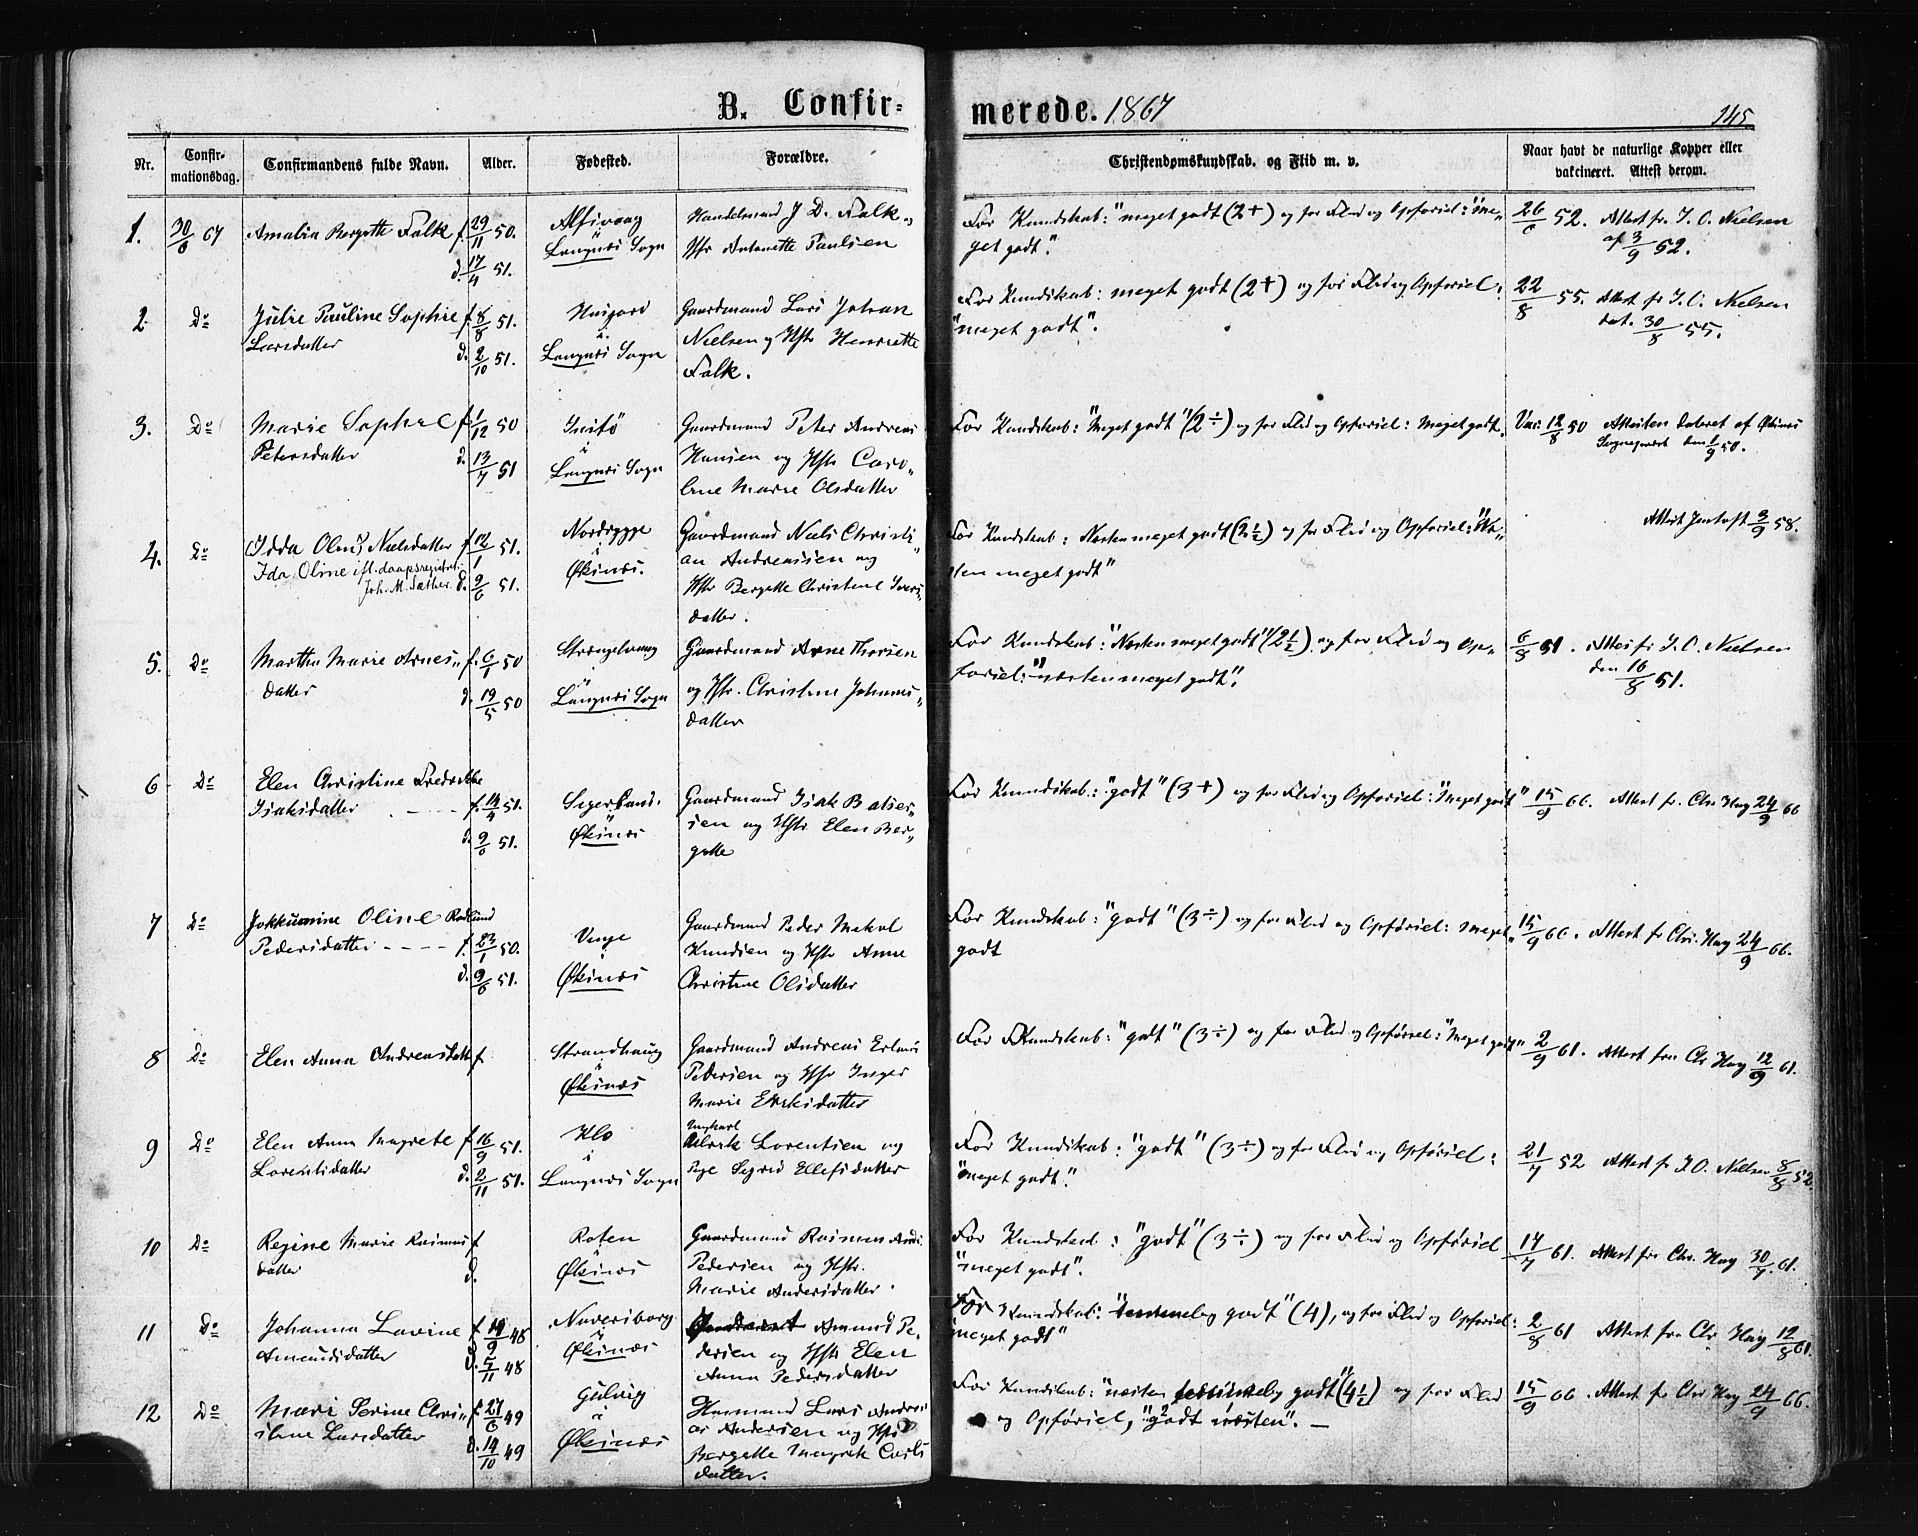 B. Confir-
merede. 1867
145
Nr.
Confir-
mationsdag.
Confirmandens fulde Navn.
Alder.
Fødested.
Forældre.
Christendomskundskab. og Flid m. v.
Naar havt de naturlige Kopper eller
vakcineret. Attest derom.
1. 30/6 67 Amalia Bergette Falk f. 29/11 50.
d. 17/4 51.
Alsivaag
Langnes Sogn
Handelsmand J D. Falk og
Hstr Antonette Paulsen
For Kundskab: "meget godt (2+) og for Flid og Opførsel: "me-
get godt".
26/6 52. Attest fr. J. O. Nielsen
af 3/9 52.
2 Do Julie Pauline Sophie f. 8/8 51.
Larsdatter d. 2/10 51.
Langnes Sogn
Gaardmand Lars Johan
Nielsen og Hstr Henriette
Falk.
For Kundskab: meget godt (2+) og for Flid og Opførsel:
"meget godt".
22/8 55. Attest fr J. O. Nielsen
dat. 30/8 55.
3. Do Marie Sophie f. 1/12 50
Petersdatter d. 13/7 51
Langnes Sogn
Gaardmand Peter Andreas
Hansen og Hstr Caro-
line Marie Olsdatter
For Kundskab: "Meget godt" (2÷) og for Flid og Opførsel: Meget godt.
Vac. 12/8 50 Attesten dateret af Øksnes
den 1/9 50.
4. Do (Idda Olin?) Nielsdatter f. 12/1 51.
Ida Oline ifl. daapsregistret.
Joh. M. Sæther. d. 9/6 51.
Nordrygge
i
Øksnes.
Gaardmand Niels Christi-
an Andreassen og
Hstr Bergette Christine Ivers-
datter.
For Kundskab: Næsten meget godt (2½) og for Flid og Opførsel: "Næ-
sten meget godt"
Attest Jentoft 3/9 58.
5. Do Martha Marie Arnes- f. 6/1 50
datter d. 19/5 50
Strengelvaag
i
Langnes Sogn
Gaardmand Arne Thorsen
og Hstr. Christine Johannes-
datter
For Kundskab: "Næsten meget godt" (2½) og for Flid og Op-
førsel: "næsten meget godt".
6/8 51. Attest fr J. O. Nielsen
den 16/8 51.
6 Do Elen Christine Fredrikke
Isaksdatter f. 14/4 51.
d. 9/6 51.
Øksnes
Gaardmand Isak Balser-
sen og Hstr Elen Ber-
gette
For Kundskab: "godt" (3+) og for Flid og Opførsel: "Meget godt"
15/9 66. Attest fr. Chr Hay 24/9 66
7 Do Jokkumine Oline Rødlund
Pedersdatter f. 23/1 50.
d. 9/6 51.
Vinje
i
Øksnes
Gaardmand Peder Mekal
Knudsen og Hstr Anne
Christine Olsdatter
For Kundskab: "godt" (3÷) og for Flid og Opførsel: meget
godt
15/9 66. Attest fr Chr. Hay 24/9 66.
8 Do Elen Anna Andreasdatter f
Strandhaug
i
Øksnes
Gaardmand Andreas
Pedersen og Hstr Inger
Marie Eriksdatter
For Kundskab: "godt" (3÷) og for Flid og Opførsel: "Meget godt"
2/9 61. Attest fra Chr Hay 12/9 61.
9 Do Elen Anna Magrete f 16/9 51.
Lorentsdatter d. 2/11 51.
Klo
i
Langnes Sogn
Ungkarl
Lorentsen og
Pige Sigrid Ellefsdatter
For Kundskab: "godt" (3÷) og for Flid og Opførsel:
"meget godt".
21/7 52 Attest fr J. O. Nielsen 8/8 52.
10 Do Regine Marie Rasmus f
datter d.
Roten
i
Øksnes
Gaardmand Rasmus
Pedersen og Hstr.
Marie Andersdatter.
For Kundskab: "godt" (3÷) og for Flid og Opførsel
"meget godt".
17/7 61. Attest fr Chr. Hay 30/7 61.
11 Do Johanna Lovine f. 19/9 48
Amundsdatter d. 5/11 48
Naversborg
i
Øksnes
Amund Pe-
dersen og Hstr Elen
Anna Pedersdatter
For Kundskab: "temmelig godt" (4), og for Flid og Opførsel:
"meget godt"
2/8 61 Attest fra Chr Hay 12/8 61.
12 Do Mari Serine Chris- f. 27/6 49
tine Larsdatter d. 14/10 49
Gulvig
i
Øksnes
Husmand Lars Andre-
as Andersen og Hstr
Bergette Magrete Carls
datter.
For Kundskab: "næsten temmelig godt" (4½) og for Flid
og Opførsel, "godt næsten". —
15/9 66. Attest fr Chr Hay 24/9 66.